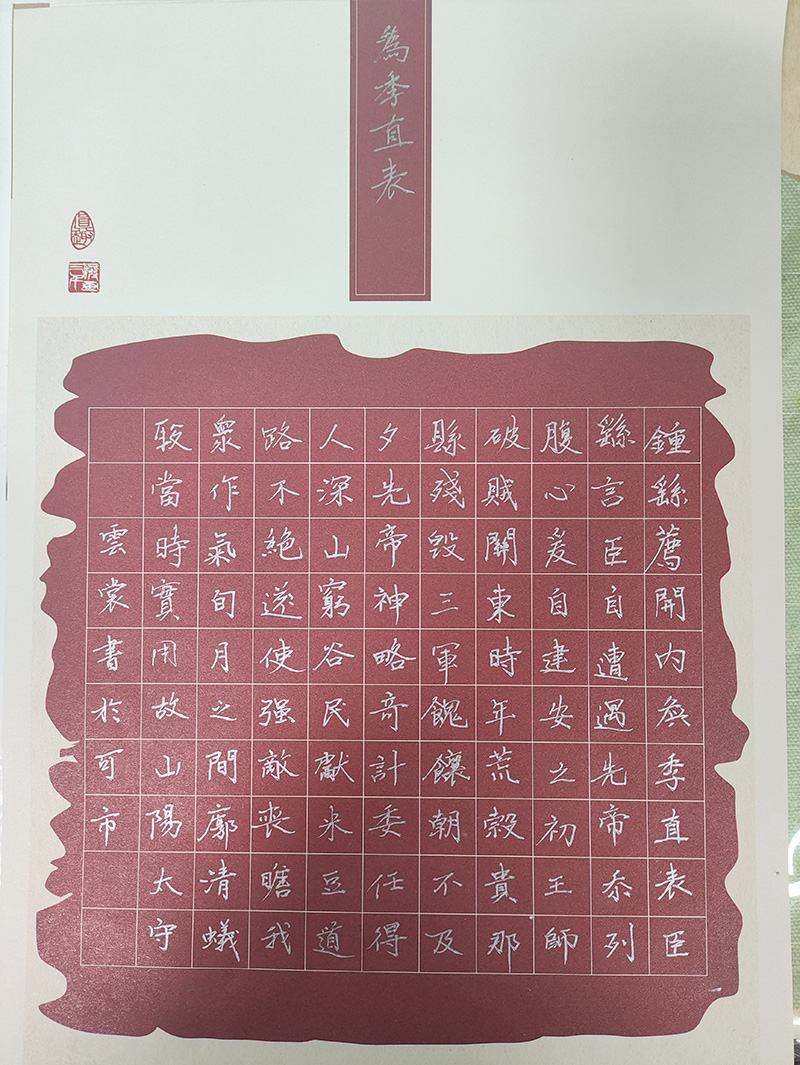 為季直表
真趣
鍾繇薦開內為季直表臣
繇言臣自遭遇先帝忝列
腹心爰自建安之初王師
破賊關東時年荒穀貴那
縣殘毀三軍餽饟朝不及
夕先帝神略奇計委任得
人深山窮谷民獻米豆道
路不絕遂使强敵喪膽我
衆作氣旬月之間廓清蟻
聚當時實用故山陽太守
雲裳書於可市